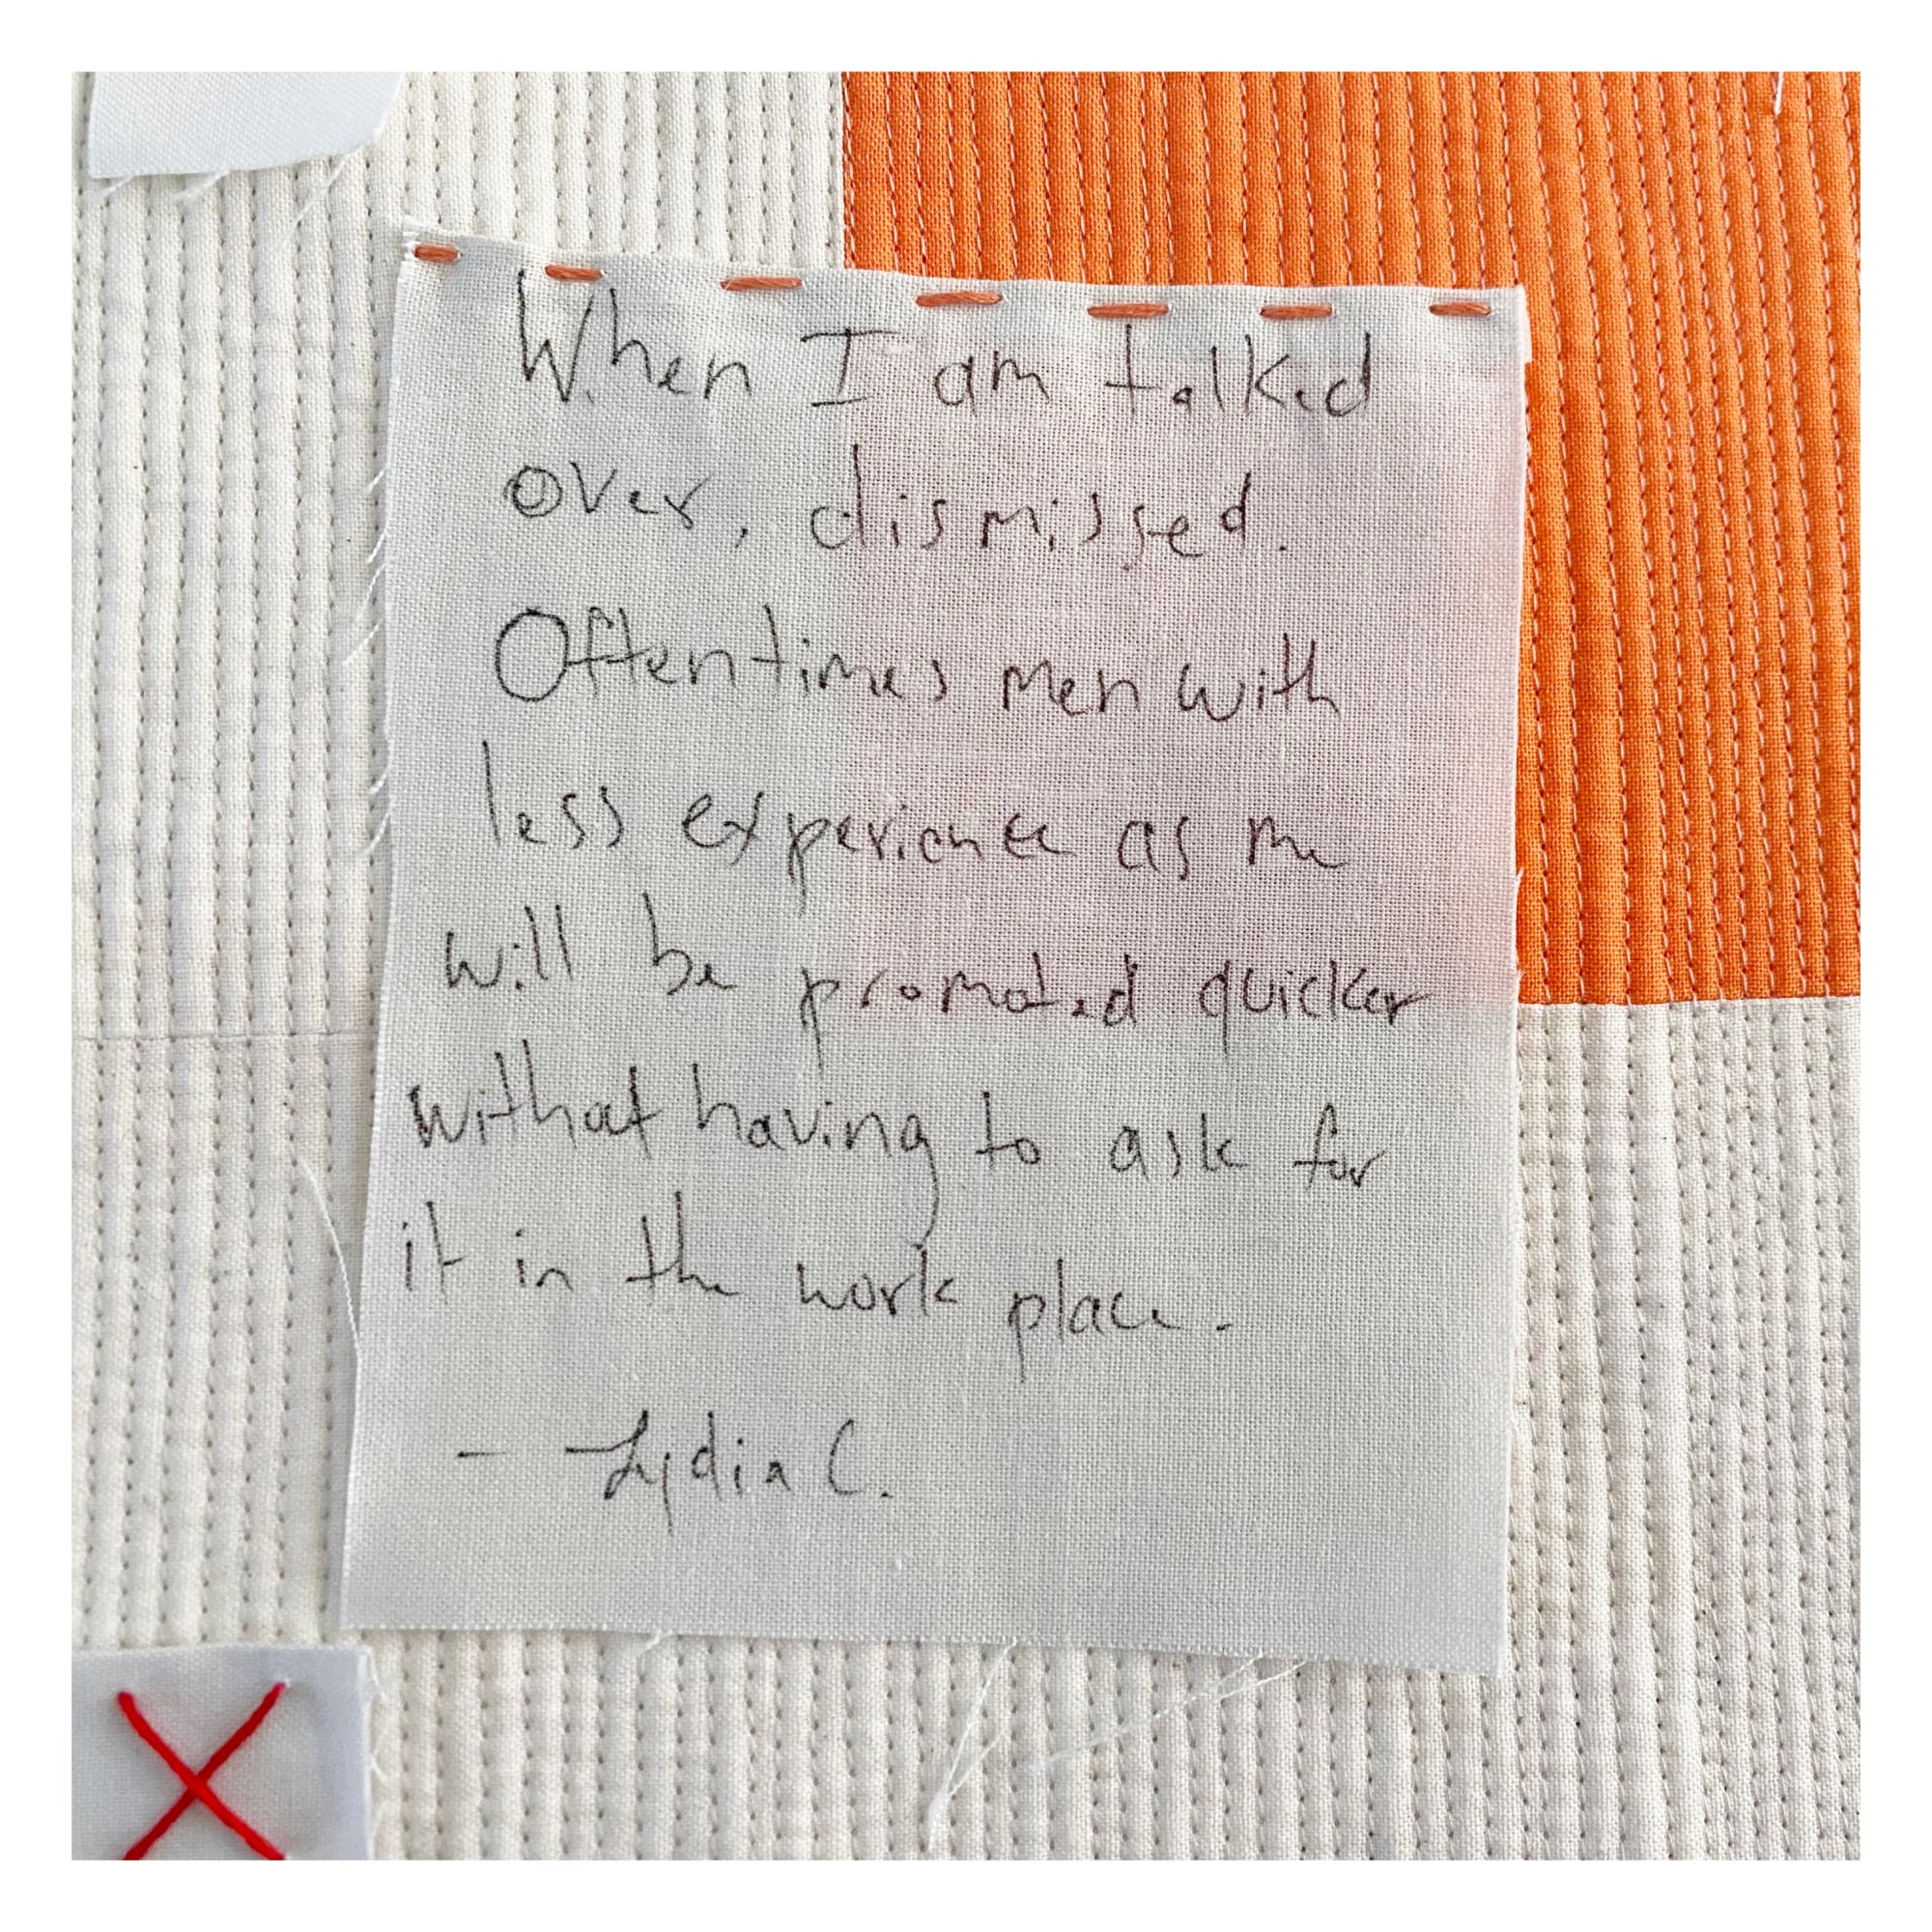 When I am talked
over, dismissed.
Oftentimes men with
less experience as me
will be promoted quicker
without having to ask for
it in the work place.
- Lydia C.